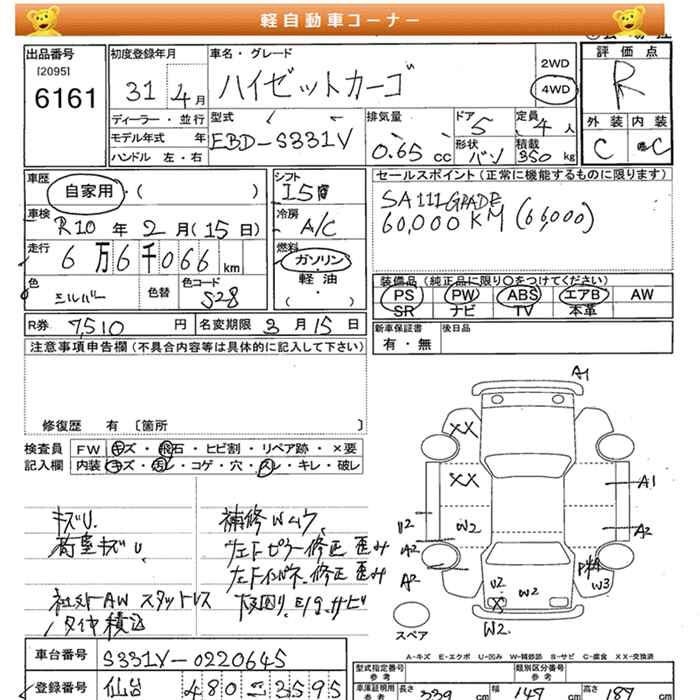 軽自動車コーナー
出品番号
[2095]
6161
初度登録年月
31 4月
車名・グレード
ハイゼットカーゴ
2WD
4WD
評価点
R
外装 内装
C C
ディーラー・並行
モデル年式 年
ハンドル 左・右
型式
EBD-S331V
排気量
0.65 cc
ドア
5
定員
4人
形状
バン
積載
350kg
車歴
自家用・( )
車検
R10年2月(15日)
走行
6万6千066km
色
シルバー
色替
色コード
S28
シフト
I5
冷房
A/C
燃料
ガソリン・
軽油・
( )
セールスポイント(正常に機能するものに限ります)
SA III GRADE
60,000KM (66,000)
装備品(純正品に限り○をつけてください)
PS PW ABS エアB AW
SR ナビ TV 本革
R券 7,510円
名変期限 3月15日
新車保証書
有・無
後日品
注意事項申告欄(不具合内容等は具体的に記入して下さい)
修復歴 有 [箇所 ]
検査員
記入欄
FW キズ・飛石・ヒビ割・リペア跡・×要
内装 キズ・汚レ・コゲ・穴・スレ・キレ・破レ
キズU.
荷室キズU
社外AW スタットレス
タイヤ積込
補修Wムラ
左Fピラー修正歪み
左Fインパネ修正歪み
下回り、E/gサビ
A1
XX
XX
A1
W2
A2
U2
A2
A2
W3
U2
W2
X
W2
スペア
A-キズ E-エクボ U-凹み W-補修跡 S-サビ C-腐食 XX-交換済
車台番号
S331V-0220645
登録番号
仙台 480 こ 3595
型式指定番号
参考
類別区分番号
参考
車庫証明用
参考
長さ 339cm
幅 147cm
高さ 187